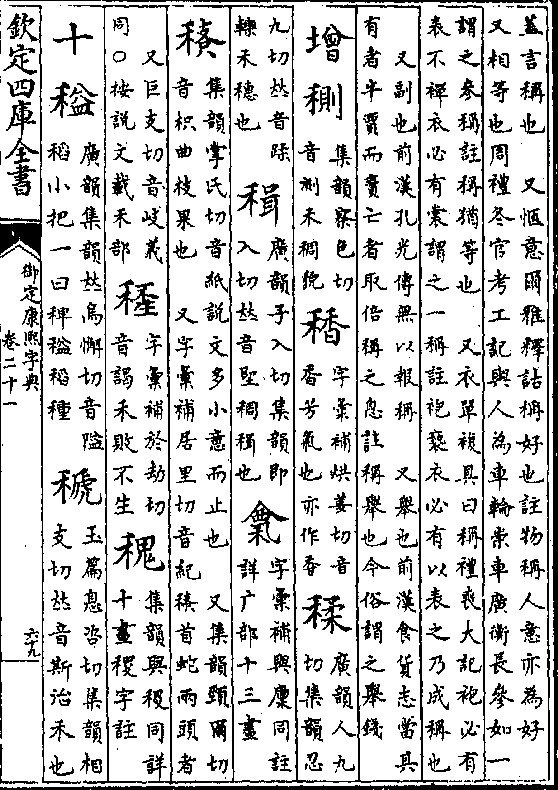 蓋言稱也 又愜意爾雅釋詁稱好也註物稱人意亦為好
又相等也周禮冬官考工記輿人為車輪崇車廣衡長參如一
謂之參稱註稱猶等也 又衣單複具曰稱禮喪大記袍必有
表不襌衣必有裳謂之一稱註袍褻衣必有以表之乃成稱也
又副也前漢孔光傳無以報稱 又舉也前漢食貨志當具
有者半賈而賣亡者取倍稱之息註稱舉也今俗謂之舉錢
增
集韻察色切
音測禾稠貌
字彙補烘姜切音
香芳氣也亦作香
廣韻人九
切集韻忍
九切𠀤音蹂
禾穗也
廣韻子入切集韻即
入切𠀤音
稠也
字彙補與廩同註
詳广部十三畫
集韻掌氏切音紙說文多小意而止也 又集韻頸爾切
音枳曲枝果也 又字彙補居里切音紀首蛇兩頭者
又巨支切音岐義
同○按說文載禾部
字彙補於劫切
音謁禾敗不生
集韻與稷同詳
十畫稷字註
十 䅬
廣韻集韻𠀤烏懈切音隘
稻小把一曰稗䅬稻種
玉篇息咨切集韻相
支切𠀤音斯治禾也
欽定四庫全書
御定康熙字典
卷二十一
六九